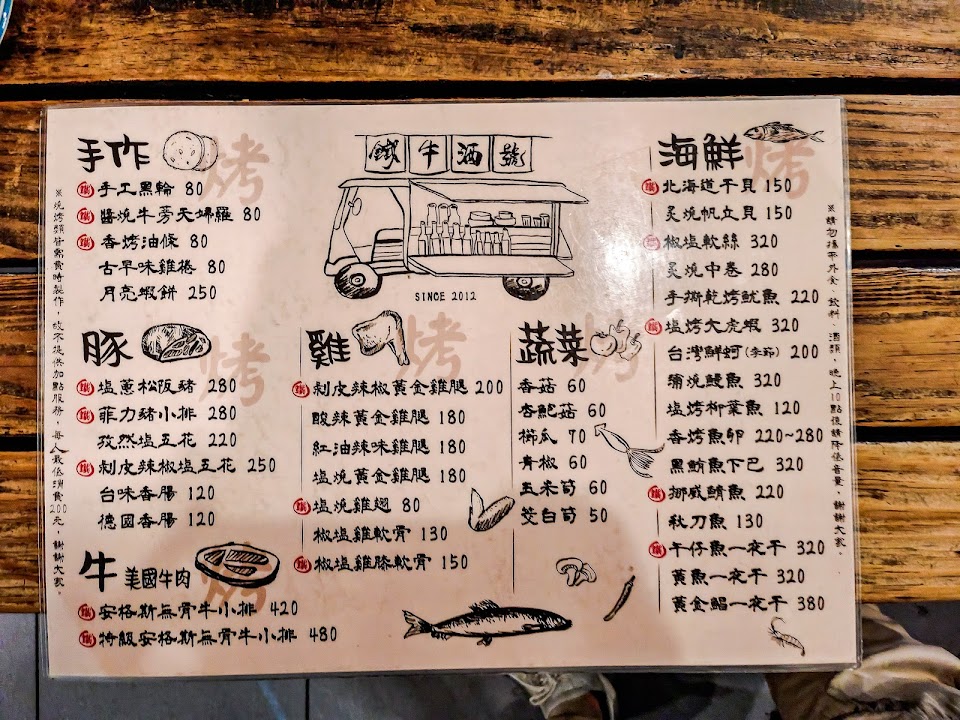 手作 烤
鐵 手工黑輪 80
鐵 醬燒牛蒡天婦羅 80
鐵 香烤油條 80
古早味雞捲 80
月亮蝦餅 250
鐵牛酒號
SINCE 2012
豚 烤
鐵 塩蔥松阪豬 280
鐵 菲力豬小排 280
孜然塩五花 220
鐵 剝皮辣椒塩五花 250
台味香腸 120
德國香腸 120
牛 美國牛肉 烤
鐵 安格斯無骨牛小排 420
鐵 特級安格斯無骨牛小排 480
雞 烤
鐵 剝皮辣椒黃金雞腿 200
酸辣黃金雞腿 180
紅油辣味雞腿 180
塩燒黃金雞腿 180
鐵 塩燒雞翅 80
椒塩雞軟骨 130
鐵 椒塩雞膝軟骨 150
蔬菜 烤
香菇 60
杏鮑菇 60
櫛瓜 70
青椒 60
玉米筍 60
茭白筍 50
海鮮 烤
鐵 北海道干貝 150
炙燒帆立貝 150
鐵 椒塩軟絲 320
炙燒中卷 280
手撕乾烤魷魚 220
鐵 塩烤大虎蝦 320
台灣鮮蚵(季節) 200
蒲燒鰻魚 320
塩烤柳葉魚 120
香烤魚卵 220~280
黑鮪魚下巴 320
鐵 挪威鯖魚 220
秋刀魚 130
鐵 午仔魚一夜干 320
黃魚一夜干 320
黃金鯧一夜干 380
※燒烤類皆需費時製作，故不提供加點服務，每人最低消費200元，謝謝大家。
※請勿攜帶外食、飲料、酒類，晚上10點後請降低音量，謝謝大家。